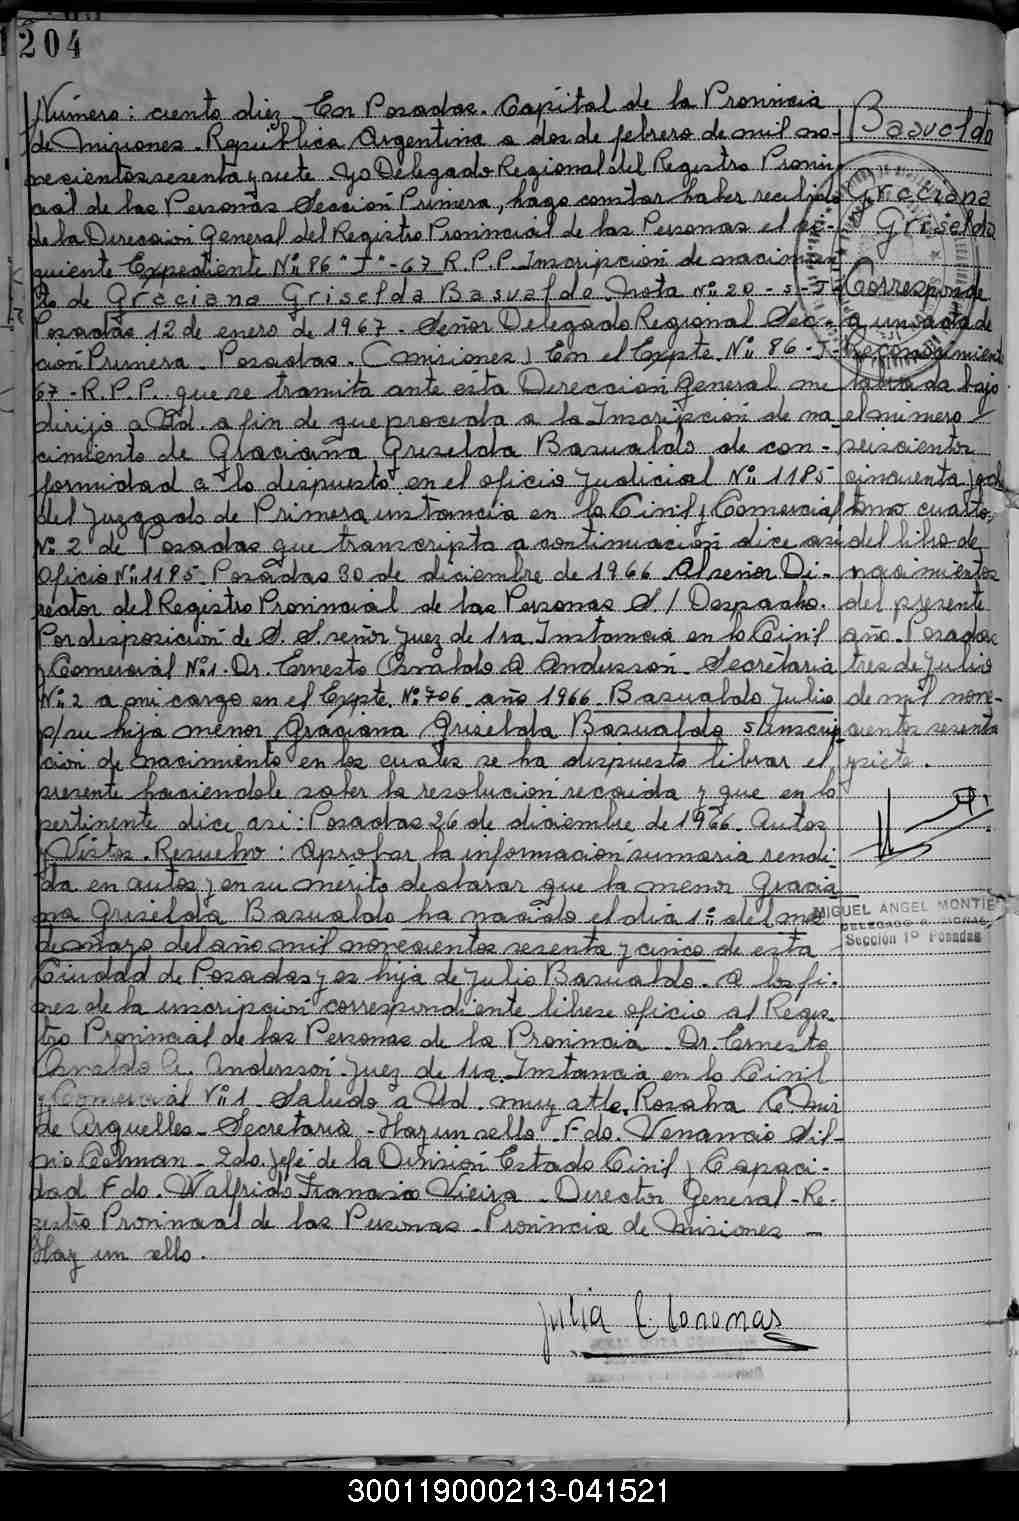 204
Número: ciento diez En Posadas. Capital de la Provincia
de Misiones. República Argentina a dos de febrero de mil no-
vecientos sesenta y siete. Yo Delegado Regional del Registro Provin-
cial de las Personas Sección Primera, hago constar haber recibido
de la Dirección General del Registro Provincial de las Personas el si-
guiente Expediente Nº 86 "J"-67 R.P.P. Inscripción de nacimien
to de Graciana Griselda Basualdo. Nota Nº 20-S-J
Posadas 12 de enero de 1967. Señor Delegado Regional Sec-
ción Primera. Posadas. (Misiones) En el Expte. Nº 86-J-
67-R.P.P. que se tramita ante esta Dirección General me
dirijo a Ud. a fin de que proceda a la Inscripción de na
cimiento de Graciana Griselda Basualdo de con-
formidad a lo dispuesto en el oficio Judicial Nº 1185
del Juzgado de Primera instancia en lo Civil y Comercial
Nº 2 de Posadas que transcripta a continuación dice asi
Oficio Nº 1185. Posadas 30 de diciembre de 1966. Al señor Di-
rector del Registro Provincial de las Personas S./Despacho.
Por disposición de S.S. señor Juez de 1ra. Instancia en lo Civil
y Comercial Nº 1. Dr. Ernesto Osvaldo A Andersson. Secretaria
Nº 2 a mi cargo en el Expte. Nº 706 año 1966. Basualdo Julio
p/su hija menor Graciana Griselda Basualdo s/inscrip
cion de nacimiento en los cuales se ha dispuesto librar el
presente haciendole saber la resolucion recaida y que en lo
pertinente dice asi: Posadas 26 de diciembre de 1966. Autos
y Vistos. Resuelvo: Aprobar la información sumaria rendi-
da en autos y en su merito declarar que la menor Gracia
na Griselda Basualdo ha nacido el día 1º del mes
de marzo del año mil novecientos sesenta y cinco de esta
Ciudad de Posadas y es hija de Julio Basualdo. A los fi-
nes de la inscripción correspondiente librese oficio al Regis-
tro Provincial de las Personas de la Provincia. Dr. Ernesto
Osvaldo A. Andersson. Juez de 1ra. Instancia en lo Civil
y Comercial Nº 1. Saludo a Ud. muy atte. Rosalva C Mir
de Arguelles. Secretaria. Hay un sello. Fdo. Venancio Sil-
vio Colman. 2do. Jefe de la División Estado Civil y Capaci-
dad Fdo. Walfrido Francisco Vieira. Director General-Re-
gistro Provincial de las Personas. Provincia de Misiones-
Hay un sello.
Julia C. Coronas
Basualdo
Graciana
Griselda
Corresponde
a un acta de
Reconocimiento
labrada bajo
el número
seiscientos
cincuenta y ocho
tomo cuarto,
del libro de
nacimientos
del presente
año. Posadas
tres de Julio
de mil nove-
cientos sesenta
y siete.
MIGUEL ANGEL MONTIE
DELEGADO REGIONAL
Sección 1º Posadas
300119000213-041521